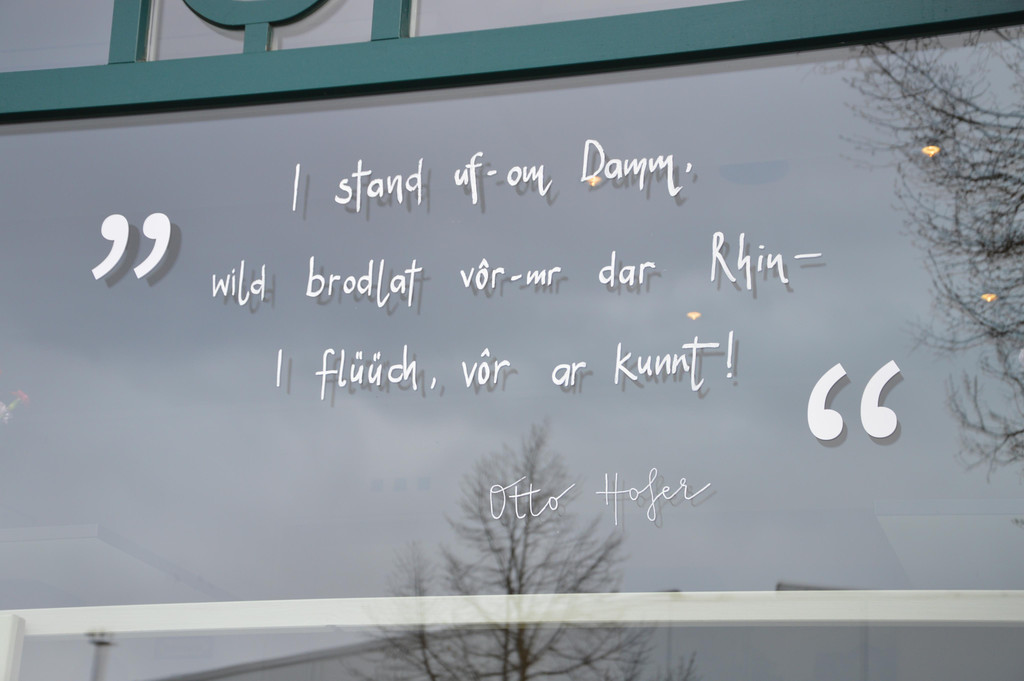 I stand uf-om Damm.
„ wild brodlat vôr-mr dar Rhin –
I flüüch, vôr ar kunnt! “
Otto Hofer